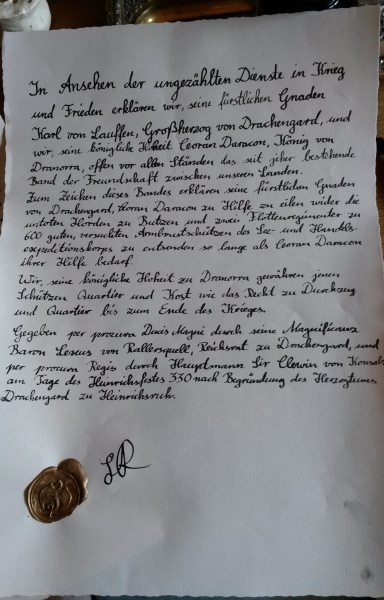 In Ansehen der ungezählten Dienste in Krieg
und Frieden erklären wir, seine fürstlichen Gnaden
Karl von Lauffen, Großherzog von Drachengard, und
wir, seine königliche Hoheit Ceoran Daracon, König von
Dranorra, offen vor allen Ständen das seit jeher bestehende
Band der Freundschaft zwischen unseren Landen.
Zum Zeichen dieses Bandes erklären seine fürstlichen Gnaden
von Drachengard, Ceoran Daracon zu Hilfe zu eilen wider die
untoten Horden zu und zwei Flottenregimenter zu
600 guten, versuchten Armbrustschützen des See- und Handels-
expeditionskorps zu entsenden so lange als Ceoran Daracon
ihrer Hilfe bedarf.
Wir, seine königliche Hoheit zu Dranorra gewähren jenen
Schützen Quartier und Kost wie das Recht zu Durchzug
und Quartier bis zum Ende des Krieges.
Gegeben per procura Ducis Magni durch seine Magnifizenz
Baron von Rallersquell, Reichsrat zu Drachengard, und
per procura Regis durch Hauptmann Sir von
am Tage des Heinrichsfestes 330 nach Begründung des Herzogtums
Drachengard zu Heinrichsruh.